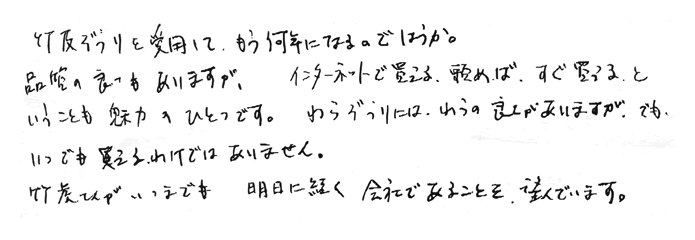 竹皮ぞうりを愛用して、もう何年になるのでしょうか。
品質の良さもありますが、インターネットで買える、頼めば、すぐ買える、と
いうことも魅力のひとつです。わらぞうりには、わらの良さがありますが、でも、
いつでも買えるわけではありません。
竹虎さんがいつまでも 明日に続く会社であることを、望んでいます。